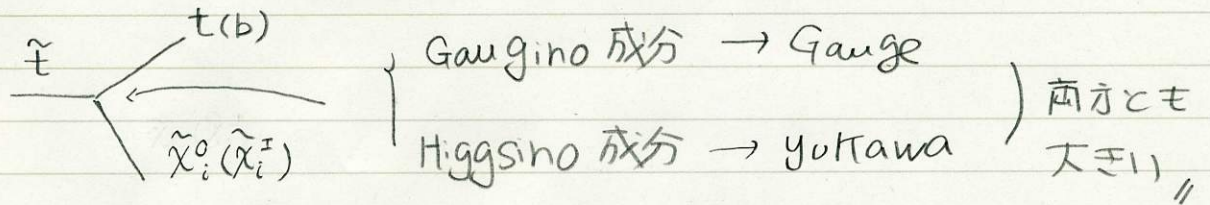 t(b)
t̃
χ̃⁰ᵢ(χ̃±ᵢ)
Gaugino 成分 → Gauge
Higgsino 成分 → Yukawa
両方とも
大きい